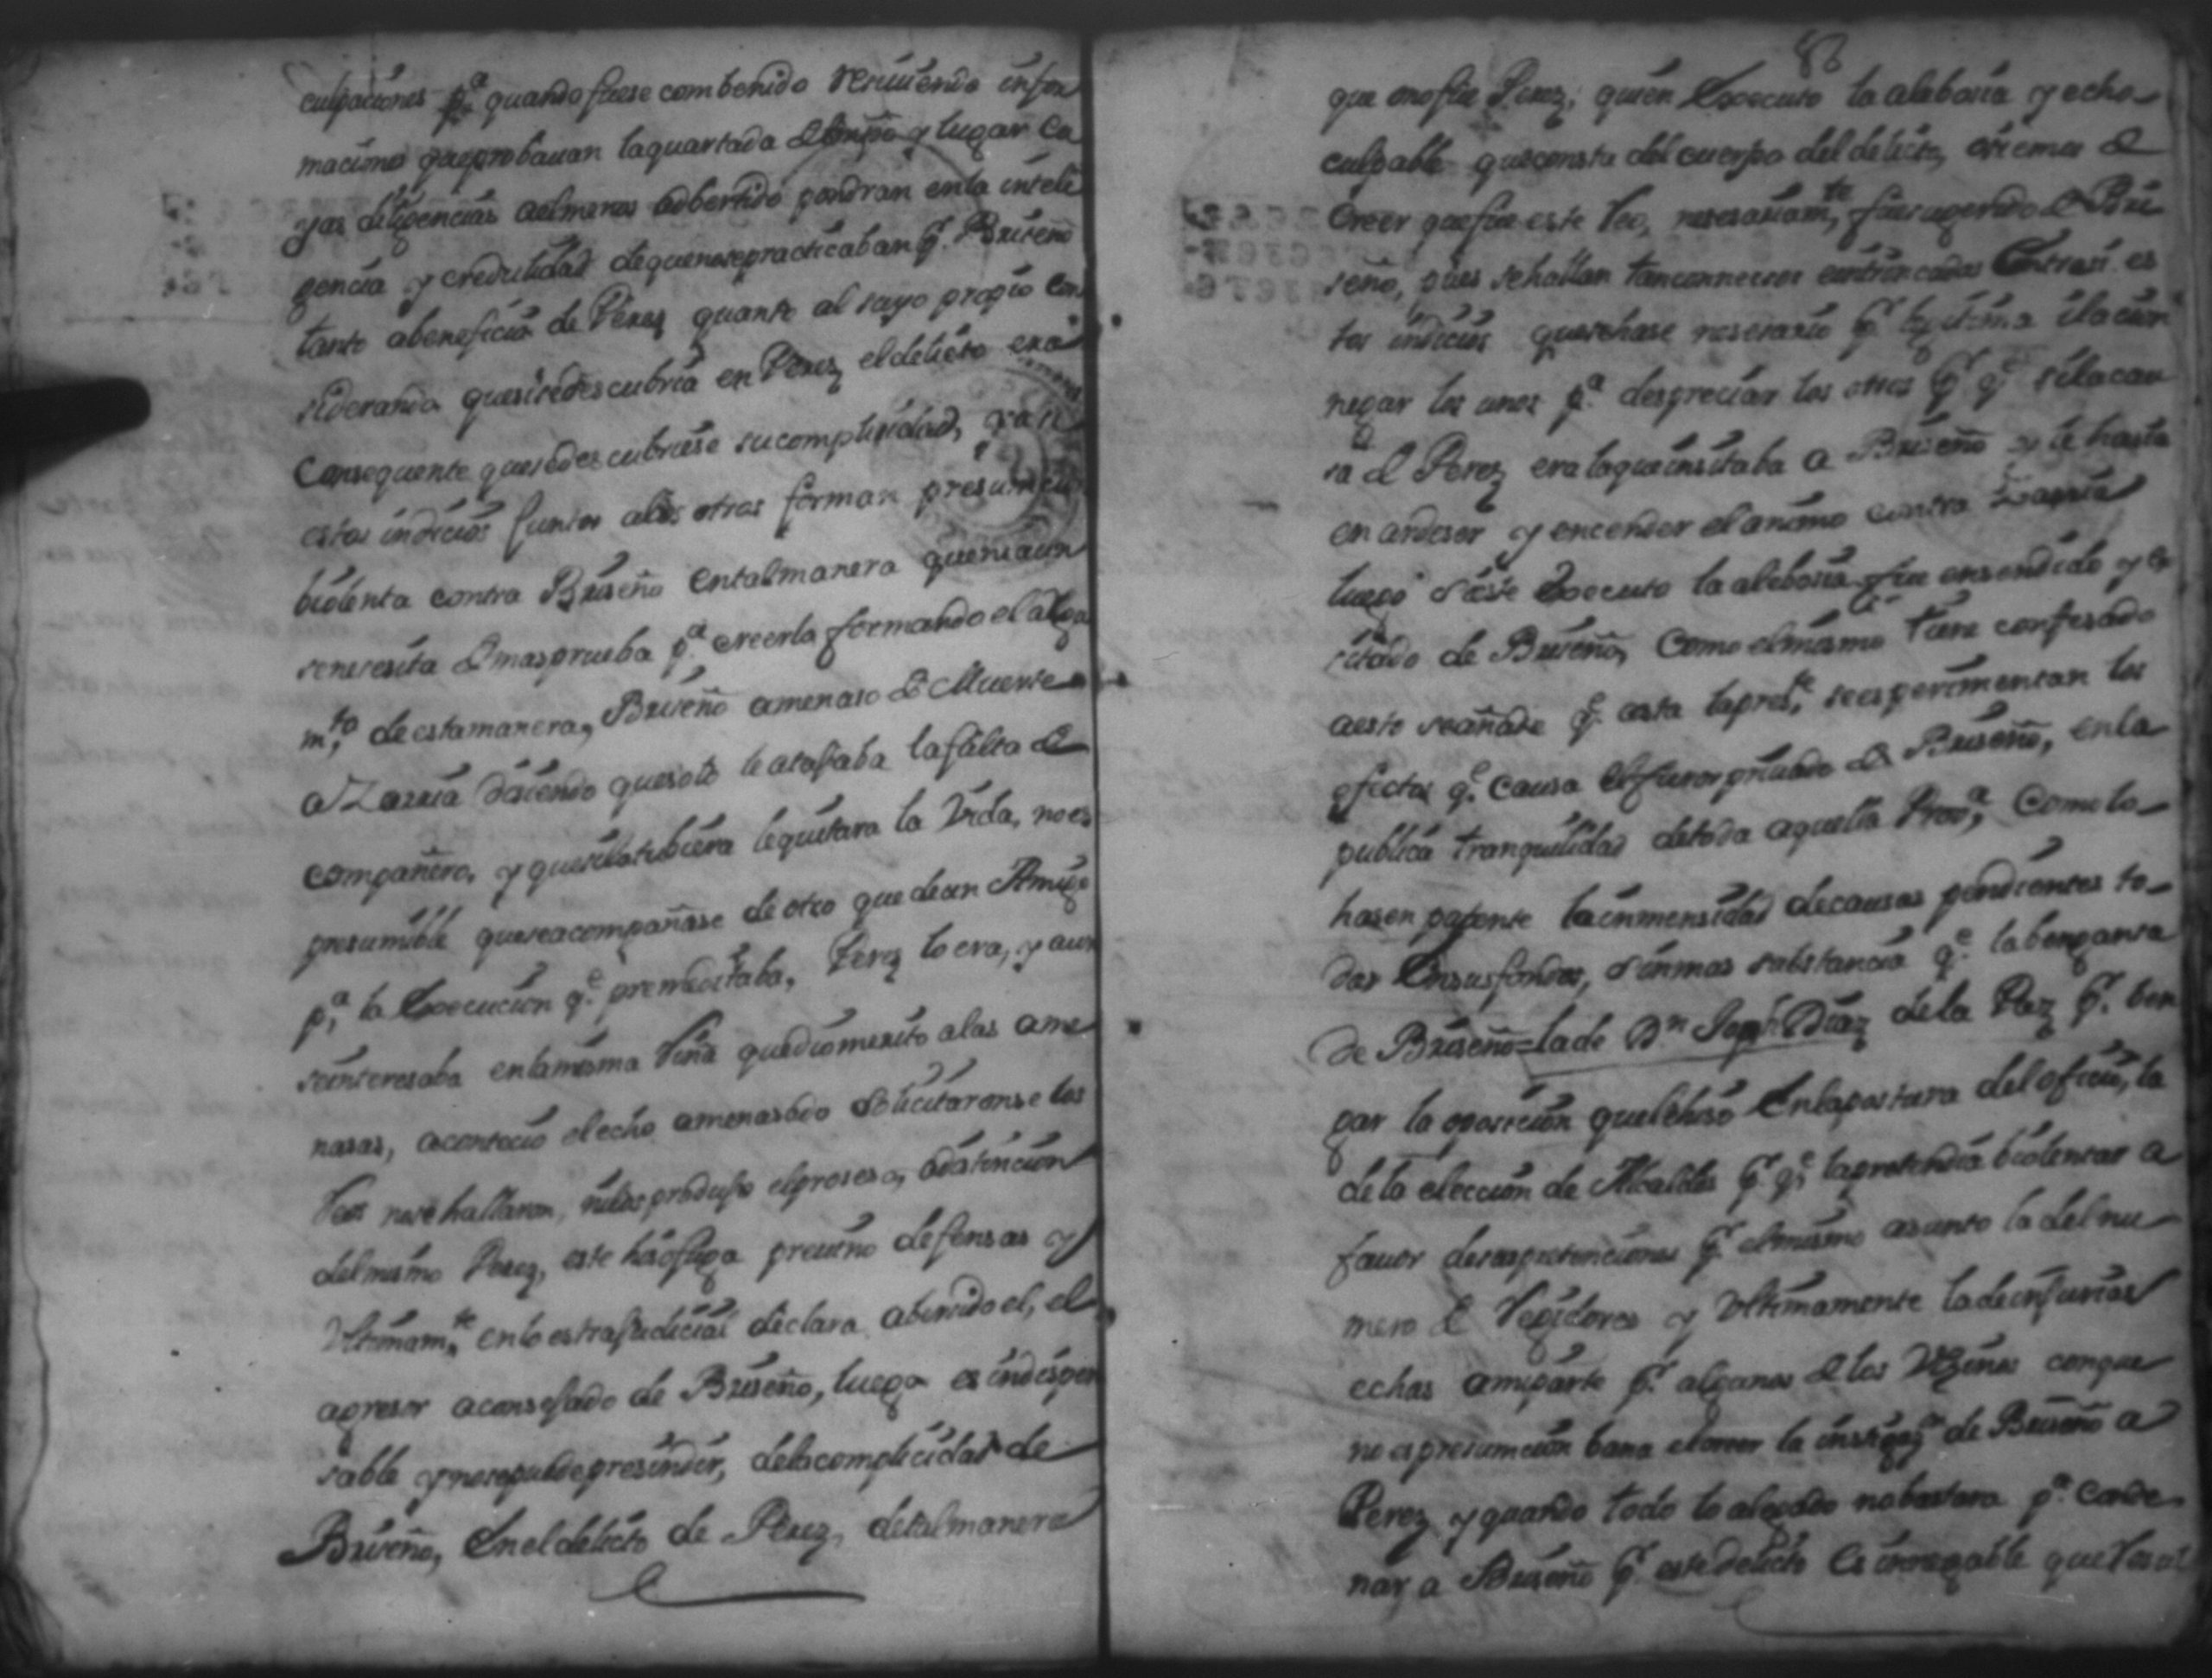 culpaciones pa. quando fuese combenido recivienda infor
maciones que probavan la quartada d tiempo y lugar Cu
yas diligencias al menos advertido pondran en la inteli
gencia y credulidad de que no se practicaban pr. Briseño
tanto a beneficio de Perez quanto al suyo propio con
siderando que si se descubria en Perez el delicto era
Consequente que se descubriese su complisidad, y a si
estos indicios Juntos a los otros forman presumcion
biolenta contra Briseño en tal manera que ni aun
se nesesita d mas prueba pa. creerla formando el alega
mto, de esta manera, Briseño amenaso d Muerte
a Zarria disiendo que solo le atajaba la falta d
compañero, y que si lo tubiera le quitara la Vida, no es
presumible que se acompañase de otro que de un Amigo
pa, la Execucion qe. premeditaba, Perez lo era, y aun
se interesaba en la misma Riña que dio merito a las ame
nasas, acontecio el echo amenasado Solicitaronse los
Reos no se hallaron, ni los produjo el proseso, a distincion
del mismo Perez, este hiso fuga previno defensas y
Vltimamte, en lo estrajudicial declara aber sido el, el
agresor aconsejado de Briseño, luego es indispen
sable y no se puede presindir, de la complicidad de
Briseño, En el delicto de Perez, de tal manera
86
que o no fue Perez, quien Executo la alebosia y echo
culpable que consta del cuerpo del delicto, o si emos d
Creer que fue este Reo, nesesariamte, fue sugerido d Bri
seño, pues se hallan tan connexos e intrincados Entre si es
tos indicios que se hase nesesario pr. legitima ilacion
negar los unos pa. despreciar los otros pr. qe. si la cau
sa d Perez era la que insitaba a Briseño y le hasia
en ardeser y encender el animo contra Zarria
luego si este Executo la alebosia fue ensendido y in
sitado de Briseño, Como el mismo Reo tiene confesado
a esto se añade qe. asta la preste, se esperimentan los
efectos qe. causa el furor privado d Briseño, en la
publica tranquilidad de toda aquella Prova, Como lo
hasen patente la inmensidad de causas pendientes to
das En sus fondos, sin mas substancia qe. la benganza
de Briseño = la de Dn Joph. Diaz de la Paz pr. ben
gar la oposicion que le hiso En la postura del oficio, la
de la eleccion de Alcaldes pr. qe, la pretendia biolentar a
favor de sus pretenciones pr. el mismo asunto la del nu
mero d Regidores y Vltimamente la de injurias
echas a mi parte pr. algunos d los Vezinos con que
no es presumcion bana el creer la instigazn de Briseño a
Perez y quando todo lo alegado no bastara pa. Conde
nar a Briseño pr. este delicto Es innegable que